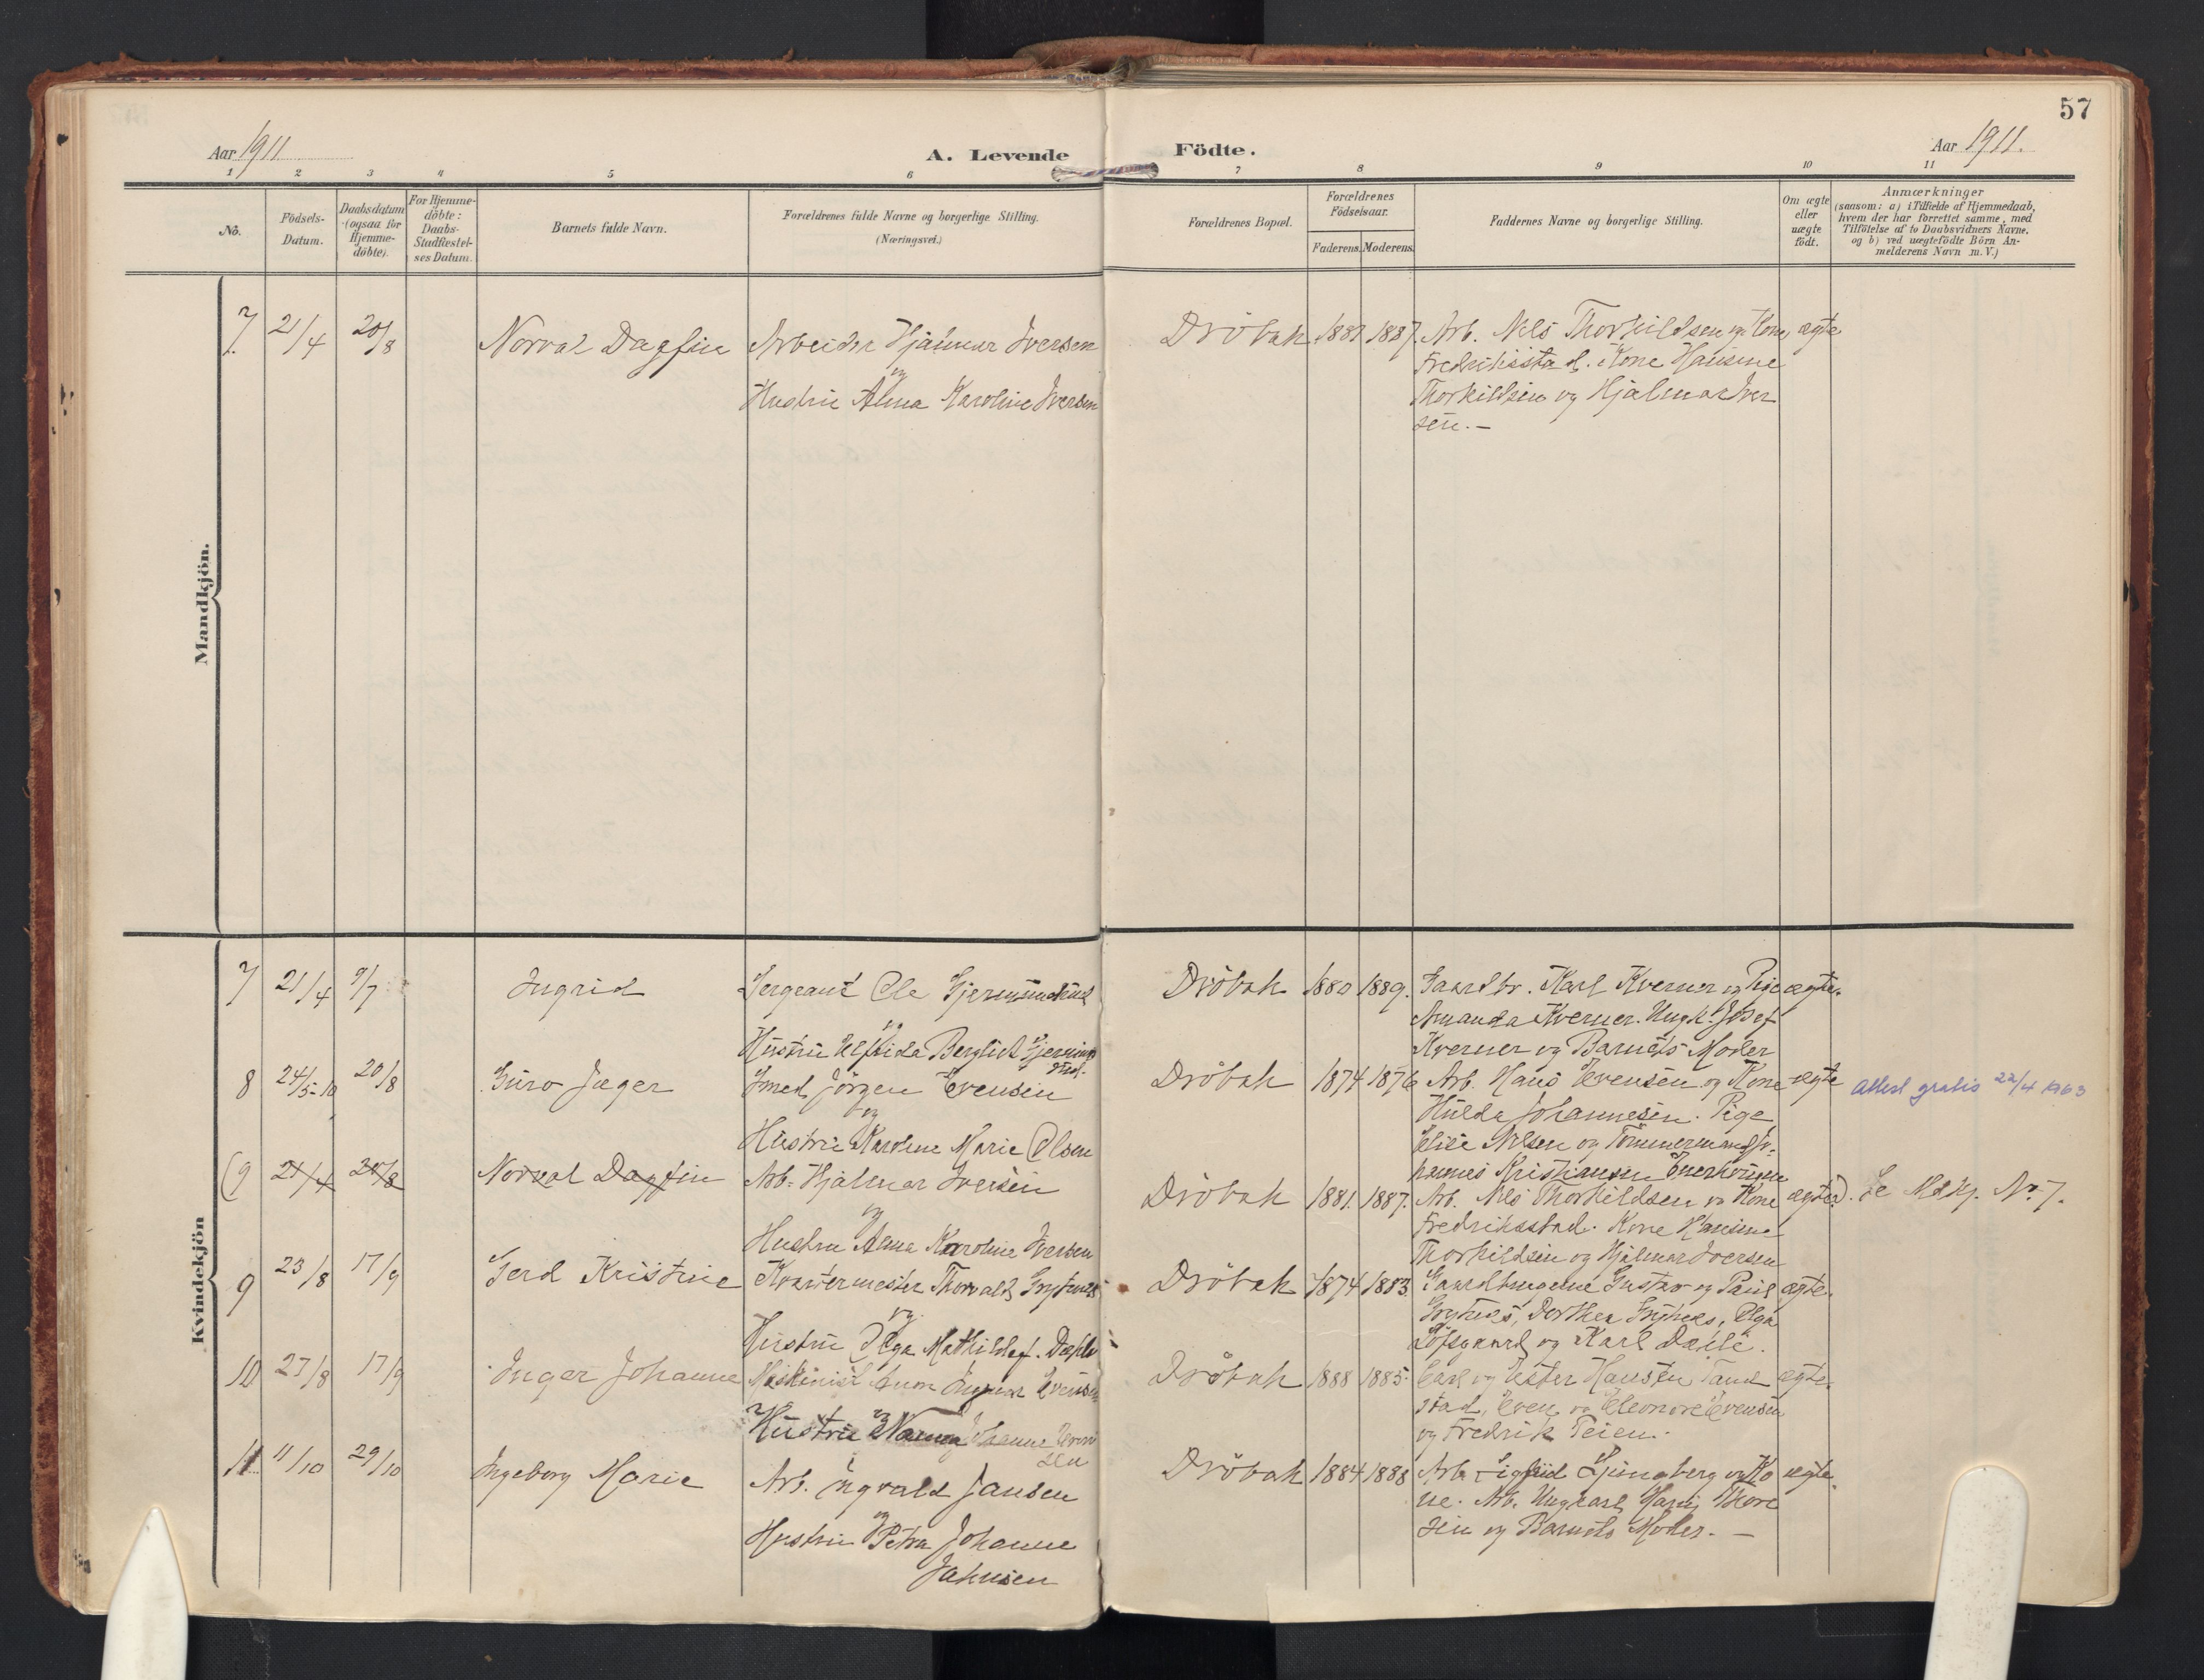 57
Aar 1911
A. Levende
Födte.
Aar 1911.
1 2 3 4 5 6 7 8 9 10 11
No.
Födsels-
Datum.
Daabsdatum
(ogsaa for
Hjemme-
döbte).
For Hjemme-
döbte:
Daabs-
Stadfæstel-
ses Datum.
Barnets fulde Navn.
Forældrenes fulde Navne og borgerlige Stilling.
(Næringsvei.)
Forældrenes Bopæl.
Forældrenes
Födselsaar.
Faderens. Moderens.
Faddernes Navne og borgerlige Stilling.
Om ægte
eller
uægte
födt.
Anmærkninger
(saasom: a) i Tilfælde af Hjemmedaab,
hvem der har forrettet samme, med
Tilföielse af to Daabsvidners Navne,
og b) ved uægtefödte Börn An-
melderens Navn m. V.)
Mandkjön.
7. 21/4 20/8 Norval Dagfin
Arbeider Hjalmar Iversen
og
Hustru Alma Karoline Iversen
Dröbak 1881 1887.
Arb. Nils Thorkildsen og Kone
Fredriksstad. Kone Hansine
Thorkildsen og Hjalmar Iver
sen.-
ægte
Kvindekjön
7 21/4 9/7 Ingrid
Sergeant Ole Gjermundstad
og
Hustru Bergliot
Dröbak 1880 1889.
Gaardbr. Karl Kverner og Pige
Amanda Kverner. Ungk. Josef
Kverner og Barnets Moder
ægte.
8 24/5-10 20/8 Guro Jæger
Smed Jörgen Evensen
og
Hustru Karoline Marie Olsen
Dröbak 1874 1876
Arb. Hans Evensen og Kone
Hulda Johannesen. Pige
Elise Nilsen og Tömmermand Jo-
hannes Kristiansen
ægte
Attest gratis 22/4 1963
(9 21/4 20/8 Norval Dagfin
Arb. Hjalmar Iversen
og
Hustru Alma Karoline Iversen
Dröbak 1881. 1887.
Arb. Nils Thorkildsen og Kone
Fredriksstad. Kone Hansine
Thorkildsen og Hjalmar Iversen
ægte).
Se Mkj. No. 7.
9 23/8 17/9 Gerd Kristine
Kvartermester Thorvald
og
Hustru Olga Mathilde
Dröbak 1874 1883.
Gaardbrugerne Gustav og Paul
Dorthea Olga
Löfsgaard og Karl
ægte.
10 27/8 17/9 Inger Johanne
Maskinist Evensen
og
Hustru Johanne Even
sen
Dröbak 1888 1885.
Carl og Ester Hansten
stad, Even og Eleonore Evensen
og Fredrik Teien.
ægte.
11 11/10 29/10 Ingeborg Marie
Arb. Ingvald Jansen
og
Hustru Petra Johanne
Jahnsen
Dröbak 1884 1888
Arb. Sigfrid Ljungberg og Ko
ne. Arb. Ungkarl Thore
sen og Barnets Moder.-
ægte.